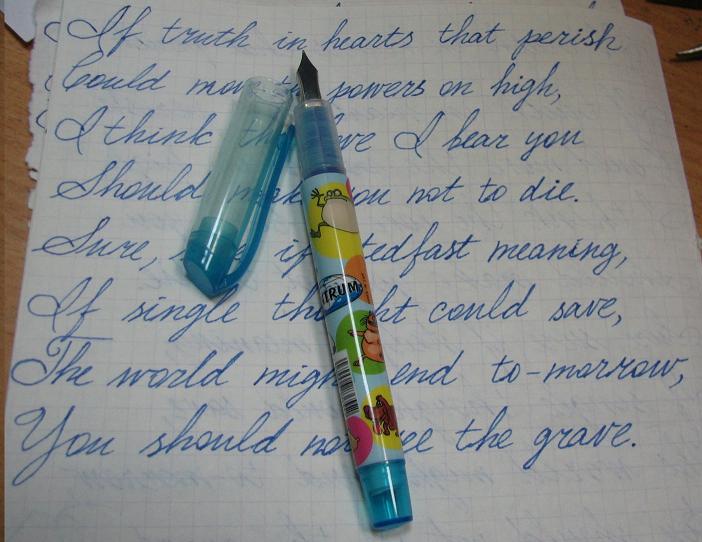 If truth in hearts that perish
Could move powers on high,
I think the love I bear you
Should make you not to die.
Sure, if stedfast meaning,
If single thought could save,
The world might end to-morrow,
You should not see the grave.
TRUM